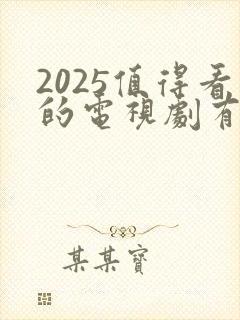 2025值得看
的電視劇有
某某寶